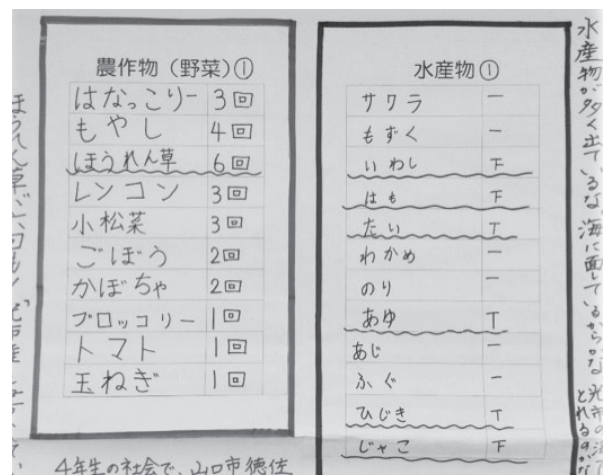 農作物（野菜）①
はなっこりー 3回
もやし 4回
ほうれん草 6回
レンコン 3回
小松菜 3回
ごぼう 2回
かぼちゃ 2回
ブロッコリー 1回
トマト 1回
玉ねぎ 1回
水産物①
サワラ 一
もずく 一
いわし 下
はも 下
たい T
わかめ 一
のり 一
あゆ T
あじ 一
ふぐ 一
ひじき T
じゃこ 下
水産物が多く出ているな 海に面しているからかな
4年生の社会で、山口市徳佐